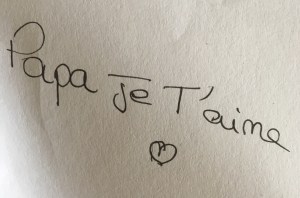 Papa Je T'aime